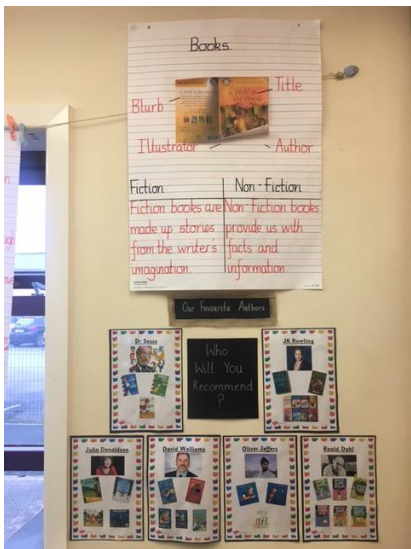 Books
Title
Blurb
Illustrator
Author
Fiction
Fiction books are
made up stories
from the writer's
imagination
Non-Fiction
Non-Fiction books
provide us with
facts and
information
Our Favourite Authors
Dr Seuss
Who
Will You
Recommend
?
JK Rowling
Julia Donaldson
David Walliams
Oliver Jeffers
Roald Dahl